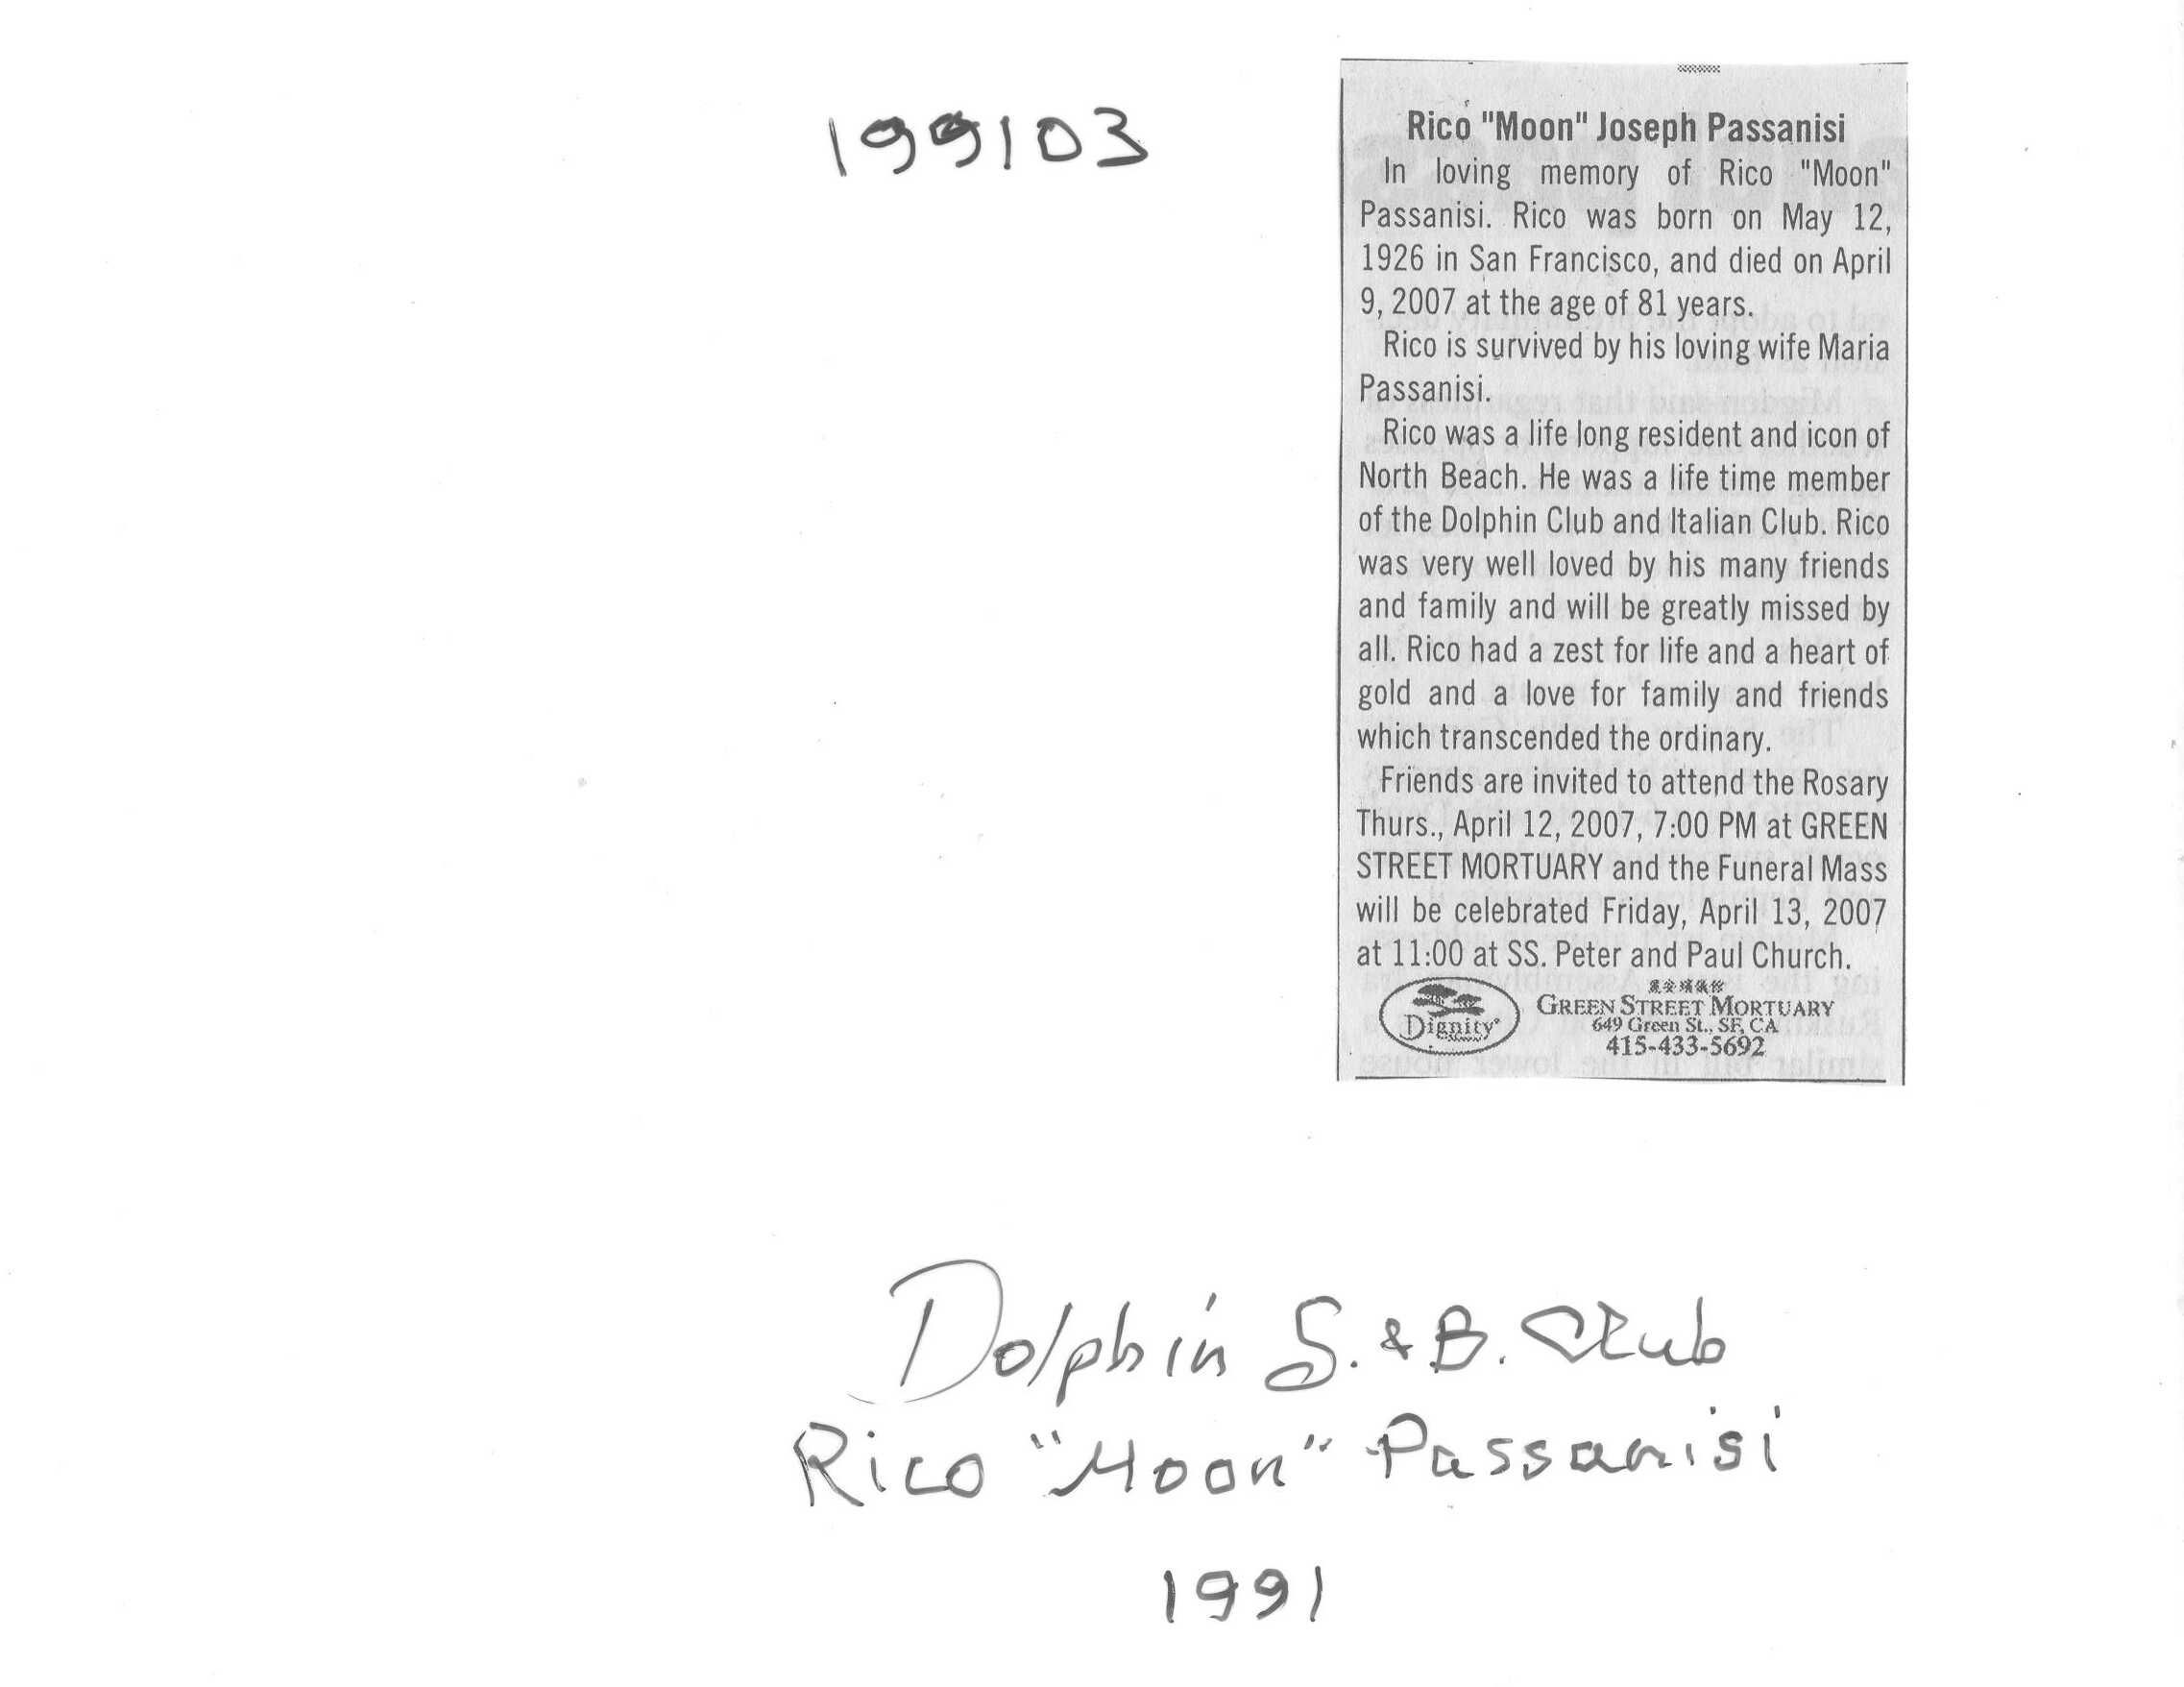 199103
Rico "Moon" Joseph Passanisi
In loving memory of Rico "Moon"
Passanisi. Rico was born on May 12,
1926 in San Francisco, and died on April
9, 2007 at the age of 81 years.
Rico is survived by his loving wife Maria
Passanisi.
Rico was a life long resident and icon of
North Beach. He was a life time member
of the Dolphin Club and Italian Club. Rico
was very well loved by his many friends
and family and will be greatly missed by
all. Rico had a zest for life and a heart of
gold and a love for family and friends
which transcended the ordinary.
Friends are invited to attend the Rosary
Thurs., April 12, 2007, 7:00 PM at GREEN
STREET MORTUARY and the Funeral Mass
will be celebrated Friday, April 13, 2007
at 11:00 at SS. Peter and Paul Church.
Dignity
GREEN STREET MORTUARY
649 Green St., SF, CA
415-433-5692
Dolphin S. & B. Club
Rico "Moon" Passanisi
1991